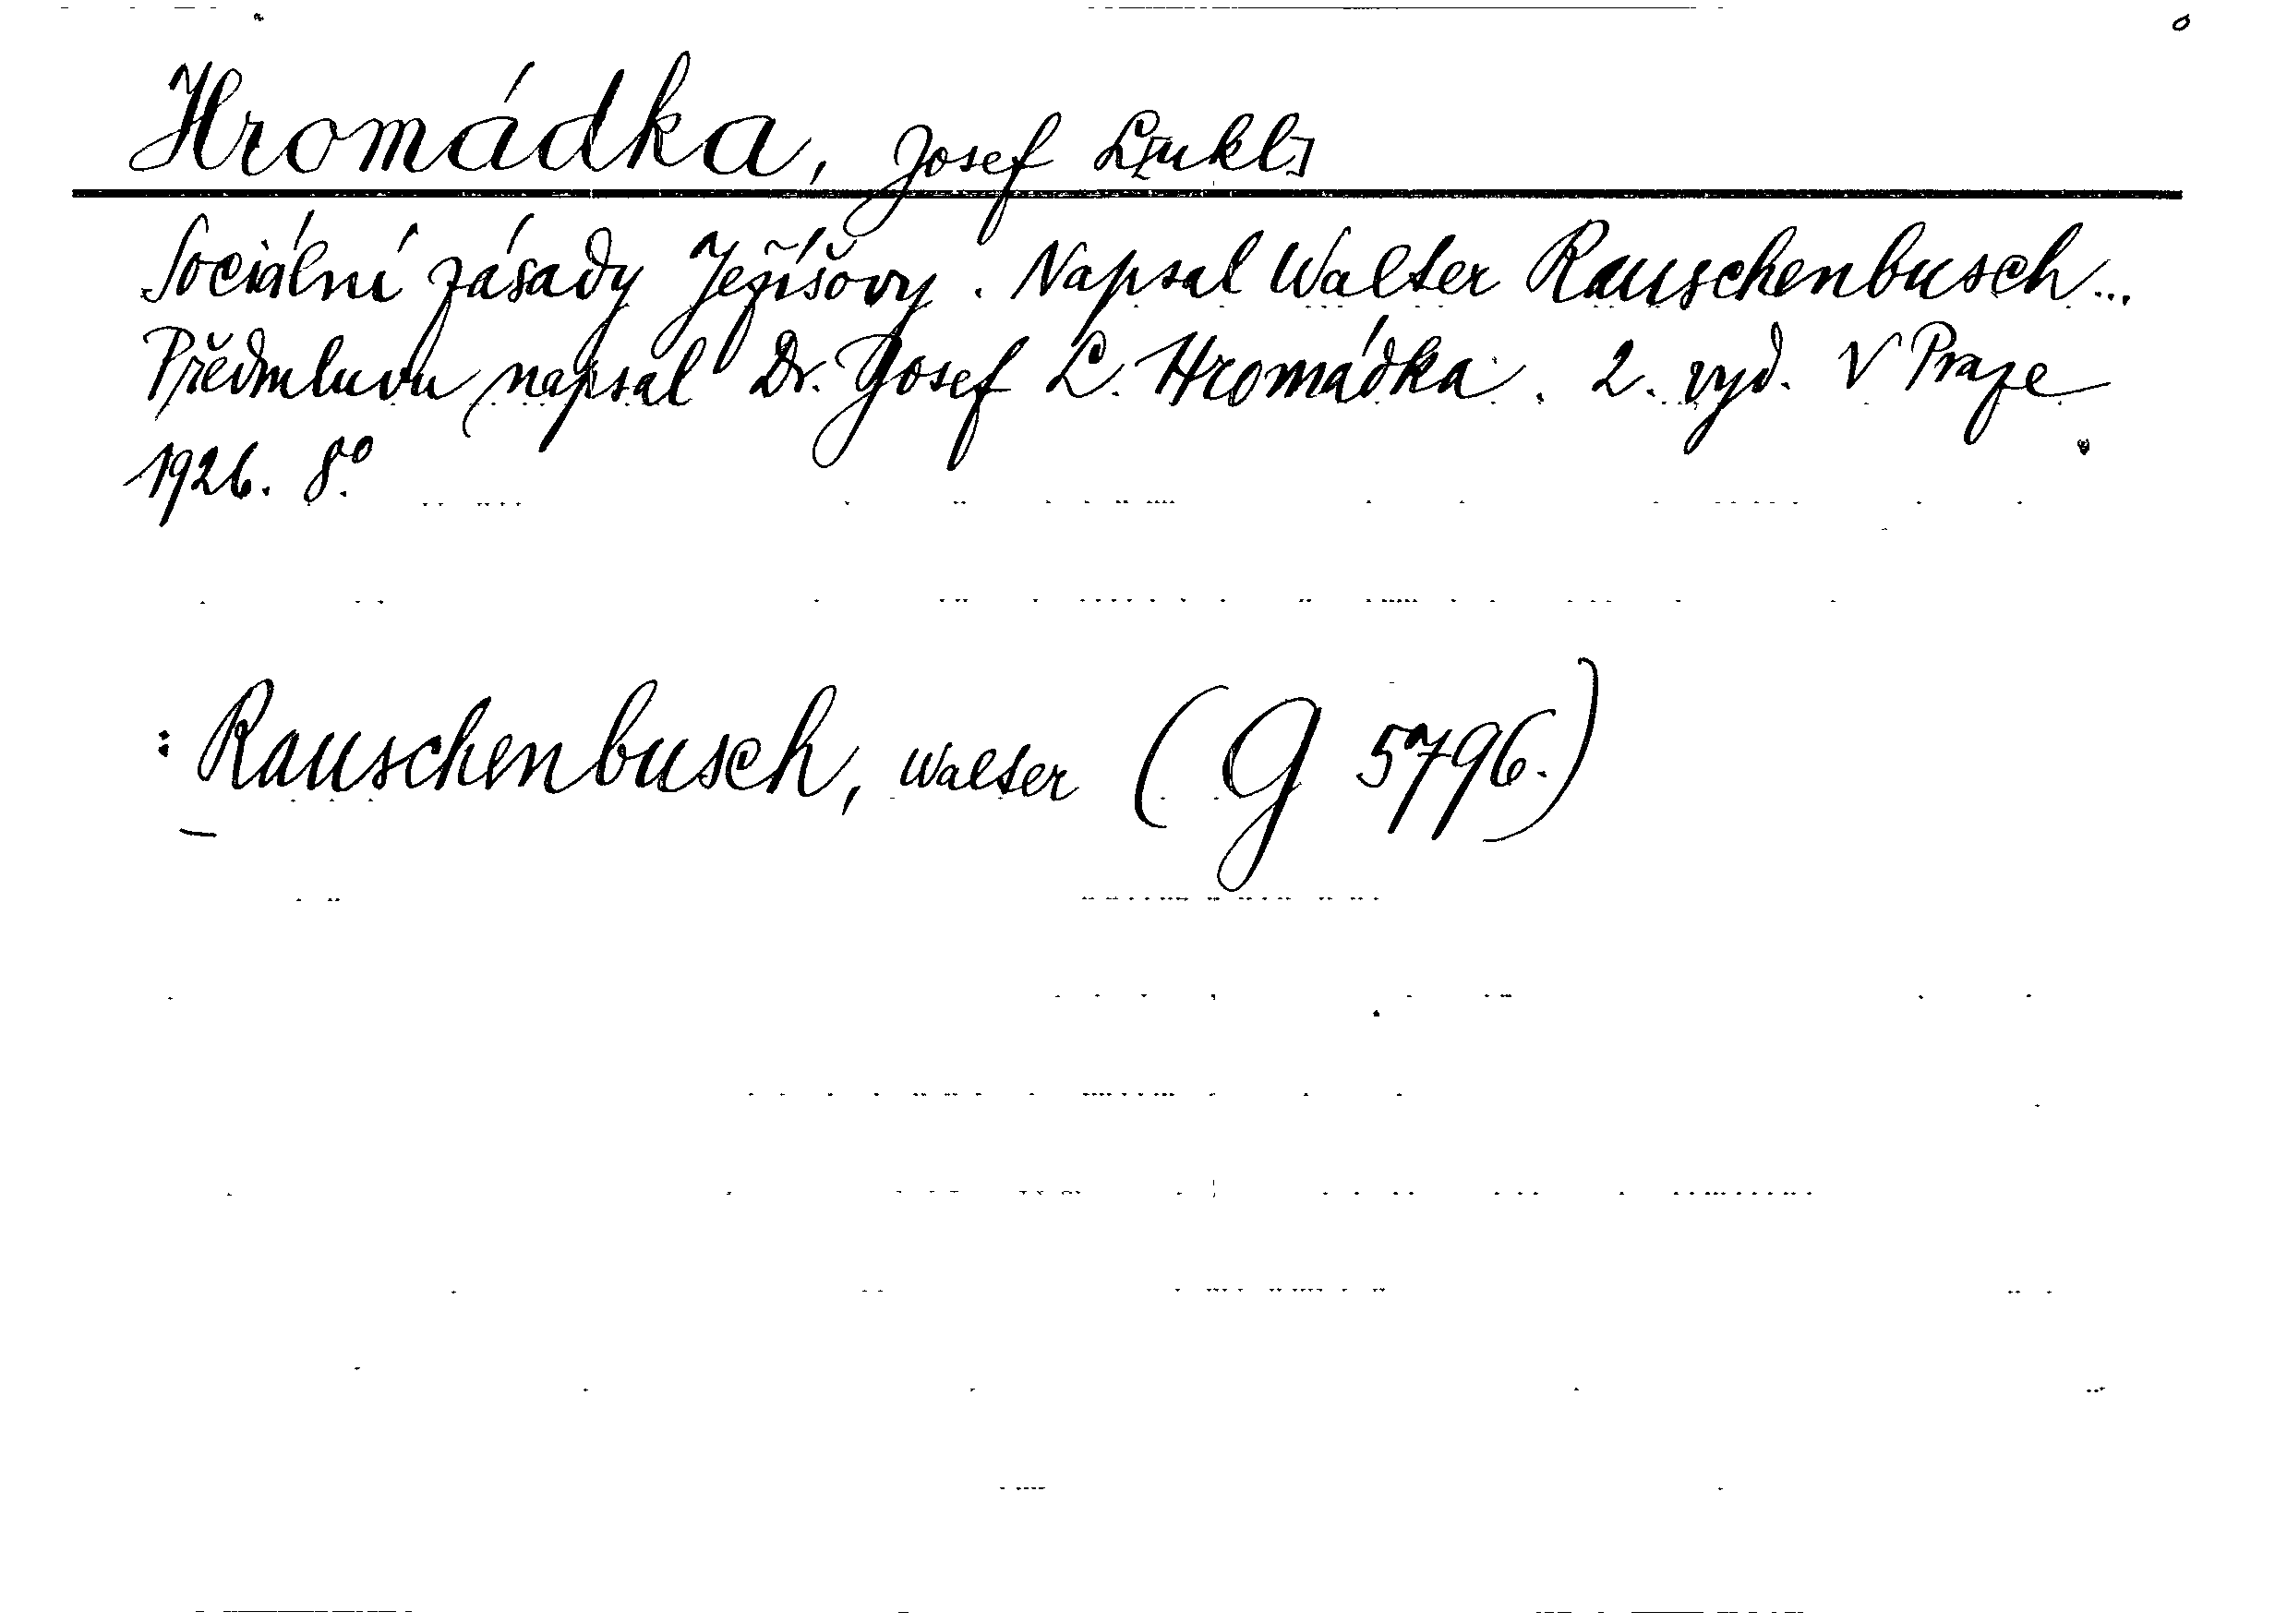 Hromádka, Josef L[ukl]
Sociální zásady Ježíšovy. Napsal Walter Rauschenbusch...
Předmluvu napsal Dr. Josef L. Hromádka. 2. vyd. V Praze
1926. 8°.
: Rauschenbusch, Walter (G 5796.)